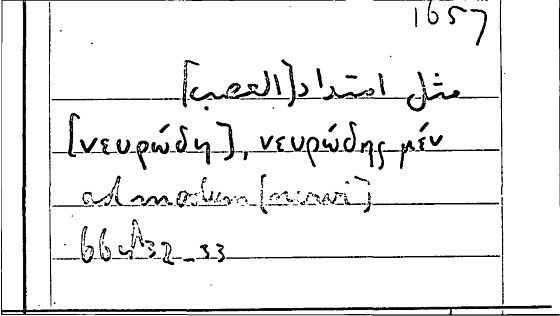 1657
مثل امتداد [العصب]
[νευρώδη], νευρώδης μέν
ad modum [nervi]
32-33